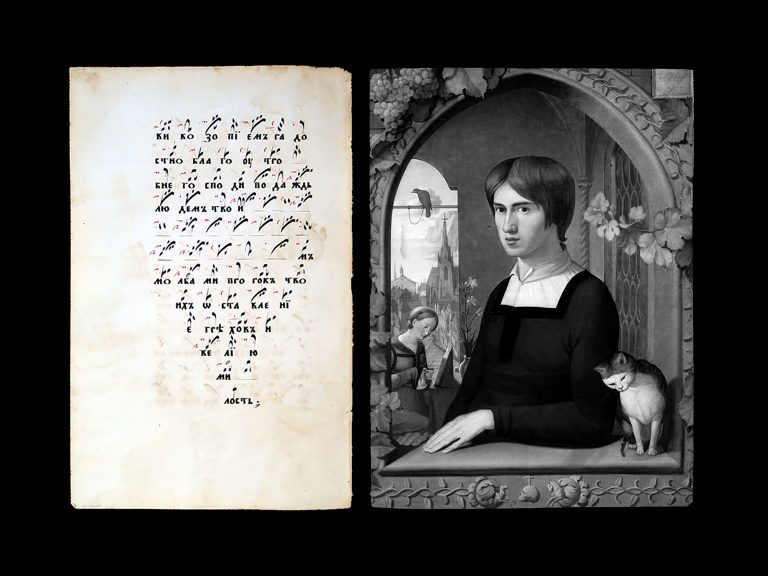 ви во зо пї емъ га до
стно бла го оу тро
бне го спо ди по да ждь
лю демъ тво и
мъ
мо лба ми про рокъ тво
ихъ ѡ ста вле нїї
е грѣ ховъ и
ве лї ю
ми
лость ;